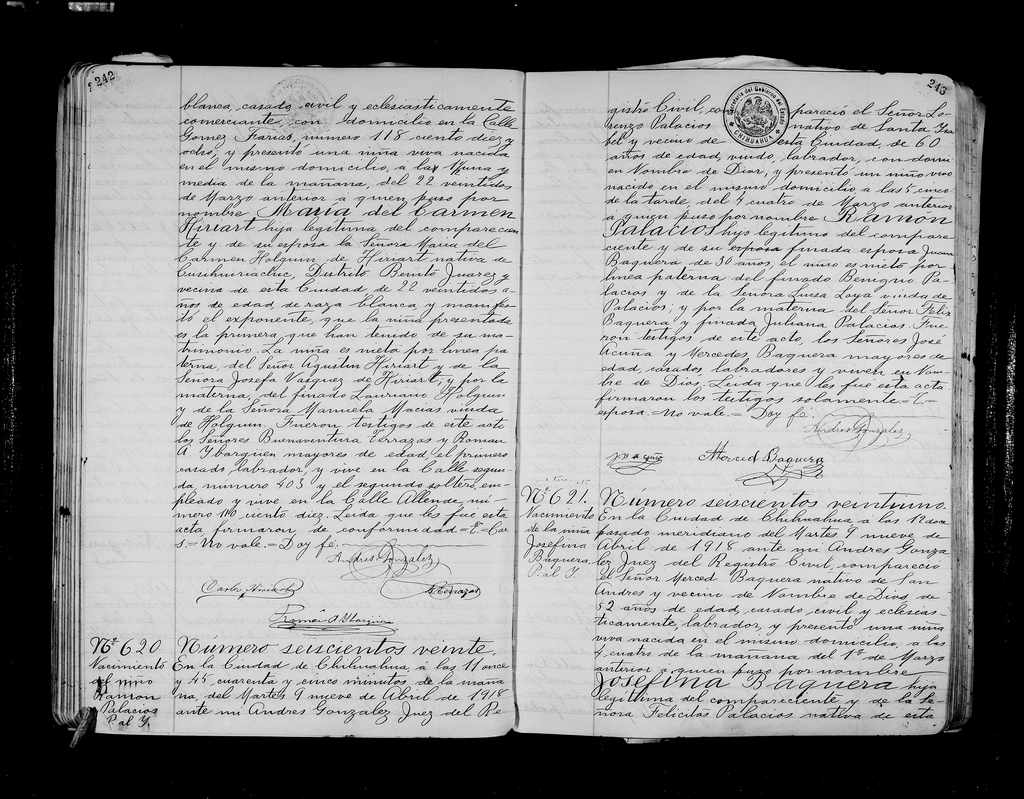 242
blanca, casado civil y eclesiasticamente
comerciante, con domicilio en la Calle
Gomez Farias, número 118 ciento diez y
ocho, y presentó una niña viva nacida
en el mismo domicilio, a la 1½ una y
media de la mañana, del 22 veintidos
de Marzo anterior a quien puso por
nombre Maria del Carmen
Hiriart hija legitima del comparecien
te y de su esposa la Señora Maria del
Carmen Holguin de Hiriart nativa de
Cusihuiriachic, Distrito Benito Juarez y
vecina de esta Ciudad de 22 veintidos a-
ños de edad de raza blanca y manifes
tó el exponente, que la niña presentada
es la primera, que han tenido de su ma-
trimonio. La niña es nieta por linea pa
terna, del Señor Agustin Hiriart y de la
Señora Josefa Vasquez de Hiriart, y por la
materna, del finado Lauriano Holguin
y de la Señora Manuela Macias viuda
de Holguin. Fueron testigos de este acto
los Señores Buenaventura Terrazas y Roman
A. Ybarguen mayores de edad, el primero
casado, labrador, y vive en la Calle segun-
da, numero 403 y el segundo soltero, em-
pleado y vive en la Calle Allende, nú-
mero 110 ciento diez. Leida que les fué esta
acta firmaron de conformidad.=E=Cor
s.=No vale.=Doy fé.
Andres Gonzalez
B. Terrazas
Román A. Ybarguen
Nº 620
Nacimiento
del niño
Ramon
Palacios
P. al Y.
Número seiscientos veinte.
En la Ciudad de Chihuahua, á las 11 once
y 45 cuarenta y cinco minutos de la maña
na, del Martes 9 nueve de Abril de 1918
ante mi Andres Gonzalez Juez del Re
243
Secretaría del Gobierno del Estado
CHIHUAHUA
gistro Civil, compareció el Señor Lo-
renzo Palacios nativo de Santa Ysa
bel y vecino de esta Ciudad, de 60
años de edad, viudo, labrador, con domi
en Nombre de Dios, y presentó un niño vivo
nacido en el mismo domicilio a las 5 cinco
de la tarde, del 4 cuatro de Marzo anterior
a quien puso por nombre Ramón
Palacios hijo legitimo del compare
ciente y de su esposa finada esposa Juana
Baquera de 30 años, el niño es nieto por
linea paterna del finado Benigno Pa-
lacios y de la Señora Luisa Loya viuda de
Palacios, y por la materna del Señor Feliz
Baquera y finada Juliana Palacios. Fue
ron testigos de este acto, los Señores José
Acuña y Mercedes Baquera mayores de
edad, casados labradores y viven en Nom-
bre de Dios. Leida que les fué esta acta
firmaron los testigos solamente=E=
esposa.=No vale.=Doy fé.
Andres Gonzalez
Merced Baquera
Nº 621.
Nacimiento
de la niña
Josefina
Baquera.
P. al Y.
Número seiscientos veintiuno.
En la Ciudad de Chihuahua a las 12 doce
pasado meridiano del Martes 9 nueve de
Abril de 1918 ante mi Andres Gonza
lez Juez del Registro Civil, compareció
el Señor Merced Baquera nativo de San
Andres y vecino de Nombre de Dios, de
52 años de edad, casado civil y eclesias-
ticamente, labrador, y presentó una niña
viva nacida en el mismo domicilio, a las
4 cuatro de la mañana del 1º de Marzo
anterior a quien puso por nombre
Josefina Baquera hija
legitima del compareciente y de la Se-
ñora Felicitas Palacios nativa de esta